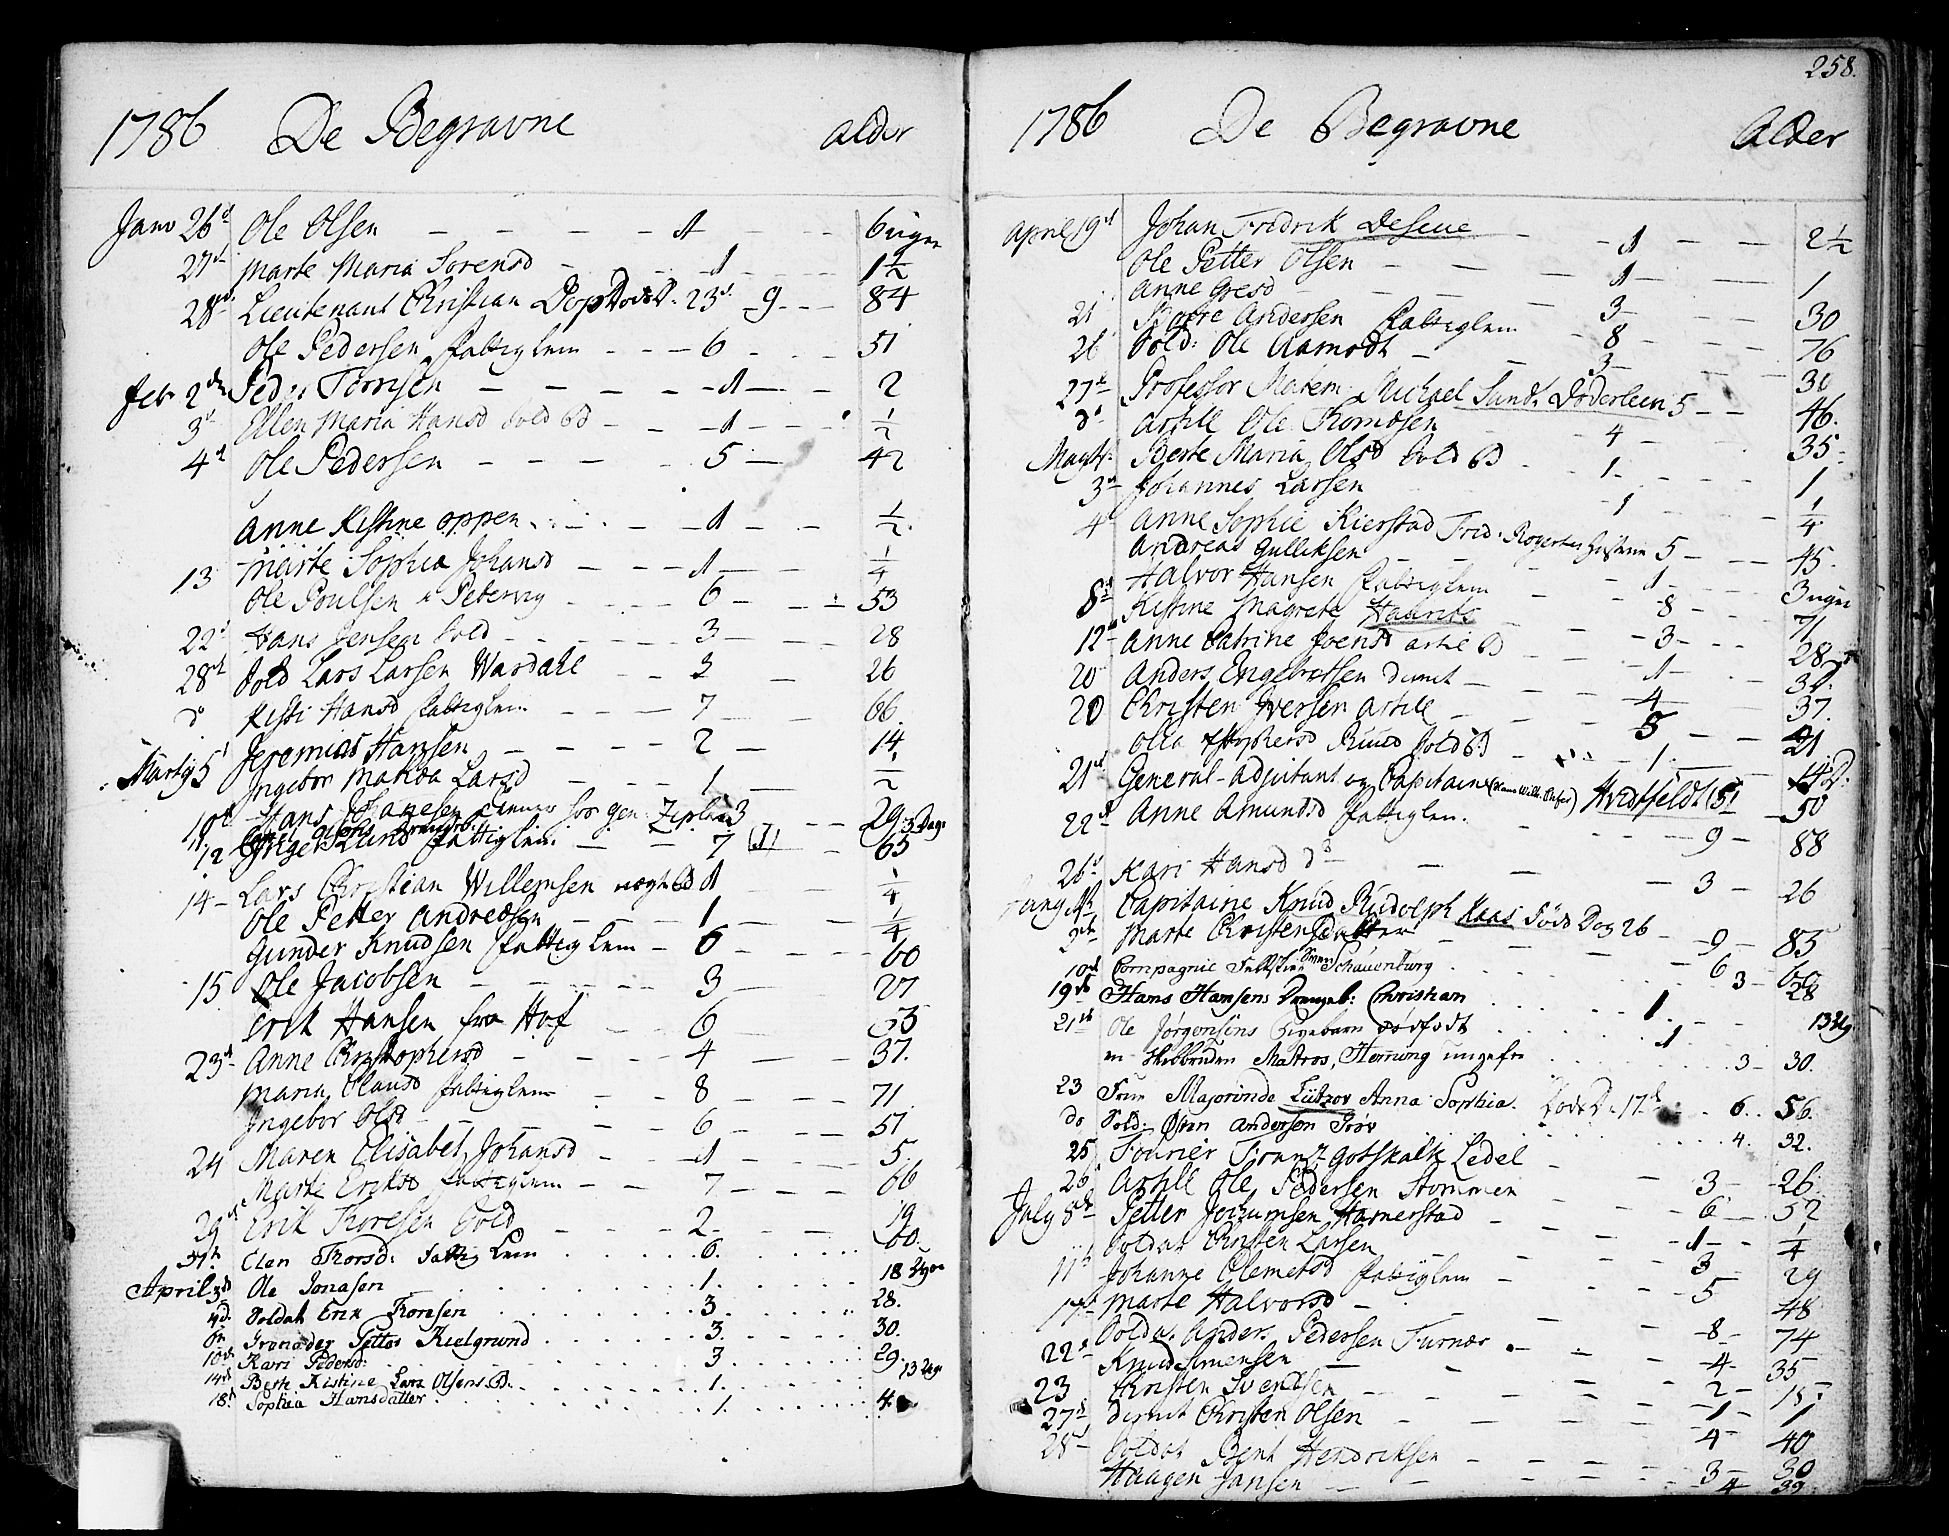 1786 De Begravne Alder
Janv 26d Ole Olsen - - - - - 1 - - 6 uger
27d Marte Maria Sorensd - - - 1 - - - 1 1/2
28d Lieutenant Christian Dop Døde D. 23d. 9 - - - 84
Ole Pedersen fattiglem - - - 6 - - - 51
Feb 2den Peder Tørrisen - - - - 1 - - 2
3d Ellen Maria Hansd Sold BD - - 1 - - - 1/2
4d Ole Pedersen - - - - 5 - 42
Anne Kistine Oppen - - - 1 - - 1/2
Marte Sophia Johansd - - - 1 - - 1/4
13 Ole Poulsen - - - 6 - - - 53
22d Hans Jensen Sold - - - - 3 - - - 28
28d Sold Lars Larsen Wardahl - - 3 - 26
do Kisti Hansd fattiglem - - - 7 - - 66
Marty 5d Jeremias Hansen - - - - 2 - 14
Ingebor Mathea Larsd - - - 1 - - 1/2
10d Hans Johanesen tienner hos gen: Zeplin 3 - - 29
11 3 Dage
12 Inger Lund fattiglem - - 7 (1) - 65
14 - Lars Christian Willemsen 1 - - 1/4
Ole Petter Andreasen - - 1 - - 1/4
Gunder Knudsen fattiglem - 6 - - - 60
15 Ole Jacobsen - - - - - 3 - - - 27
Erik Hansen fra Hof - - 6 - - 53
23d Anne Christophersd - - - 4 - - 37.
Maria Olausd fattiglem - - 8 - - 71
Ingebor Olsd - - - - 6 - - 51
24 Maren Elisabet Johansd - - 1 - - 5
Marte Eriksd fattiglem - - 7 - - - 66
29d Erik Thoresen Sold - - - 2 - - 19
31te Elen Thorsd: Fattig Lem . . . . . 6. . . . . 60.
April 3d Ole Jonasen . . . . . 1. . . . . 18 Uger
4d. Soldat Erik Thoresen . . . . 3. . . . . 28.
6te Grenader Petter Kielgrund . . . . 3. . . . . 30.
10de Kari Pedersd: . . . . . 3. . . . . 29
14de Berte Kistine Lars Olsens B. . . . . 1. . . . . 13 Ug
18. Sophia Hansdatter . . . . . 1. . . . . 4
258.
1786 De Begravne Alder
April 19d Johan Fredrik Deseue - - 1 - - 2 1/2
Ole Petter Olsen - - - - 1 - -
Anne Gresd 3 - - 1
21 Andersen fattiglem - 8 - - 30
26 Sold: Ole Aamodt - - 3 - - 76
27d Professor Matem: Michael Sund. Døderleen 5 - - 30
do Artill Ole Thomesen - - 4 - - 46.
May 1. Berte Maria Olsd Sold BD - - 1 - - - 35.
3d Johannes Larsen - 1 - - - 1
4 Anne Sophie Kierstad Fred: 5 - 1/4
Andreas Gulliksen - - - 1 - - 45.
8d Halvor Hansen fattiglem - - 8 - - 3 uger
Kistine Magrete Haarits - - 3 - - - 71
12d Anne Catrine Joensd Artil BD - - 1 - - 28
20 Anders Engebretsen Dimit - - - 4 -
20 Christen Iversen Artill - - - 5 - - 37.
Olia Christophersd Ruud Sold BD - - - 1 - - 21
21d General-Adjutant og Capitaine (Hans Will. ) Hvidtfeldt (5) 14 D.
22d Anne Amundsd fattiglem. - - - 9 - 50
26d Kari Hansd do - - - 3 - 88
Capitaine Knud Rudolph Kaas Døde Dag 26 - 9 - 26
Marte Christensdatter - - - 6 - - 83
10d Compagnie Feltskier Schauenburg . . . . . 3 - 60
19de Hans Hansens Drengeb: Christian . . . . 1. . . . 28
21de Ole Jørgensens Pigebarn dødfødt . . . . . 1. . . . 13 Ug
en skibbruden Matros, Hornung ungefer . . . . . 3 - 30.
23 Frue Majorinde Lützov Anna Sophia. Døde D. 17d . . 6. . 56.
do Sold: Østen Andersen Frøv . . . . . 4. 32.
25 Fourier Frantz Gotskalk Ledel -
26. Artill Ole Pedersen Strømmen - - 3 - 26.
July 8de Petter Jochumsen Hamerstad - - 6 - 52
Soldat Christen Larsen - - 1 - - 1/4
11te Johanne Clemetsd fattiglem - - 3 29
17d Marte Halvorsd - - - 5 - 48
Soldat Anders Pedersen Furnær - - 8 - 74
22d Knud Simensen - - - 4 - 35
23 Christen Svendsen - - - 2 - 15
27d Dimit Christen Olsen - - - 1 - 1
28d Soldat Bent Hendriksen - - - 4 - 40
Haagen Jansen - - - 3 - 30
4 39